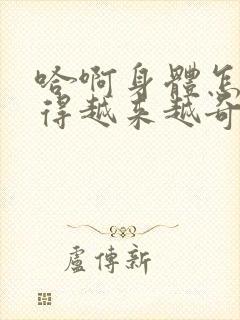 哈啊身體怎
得越来越奇
盧傳新